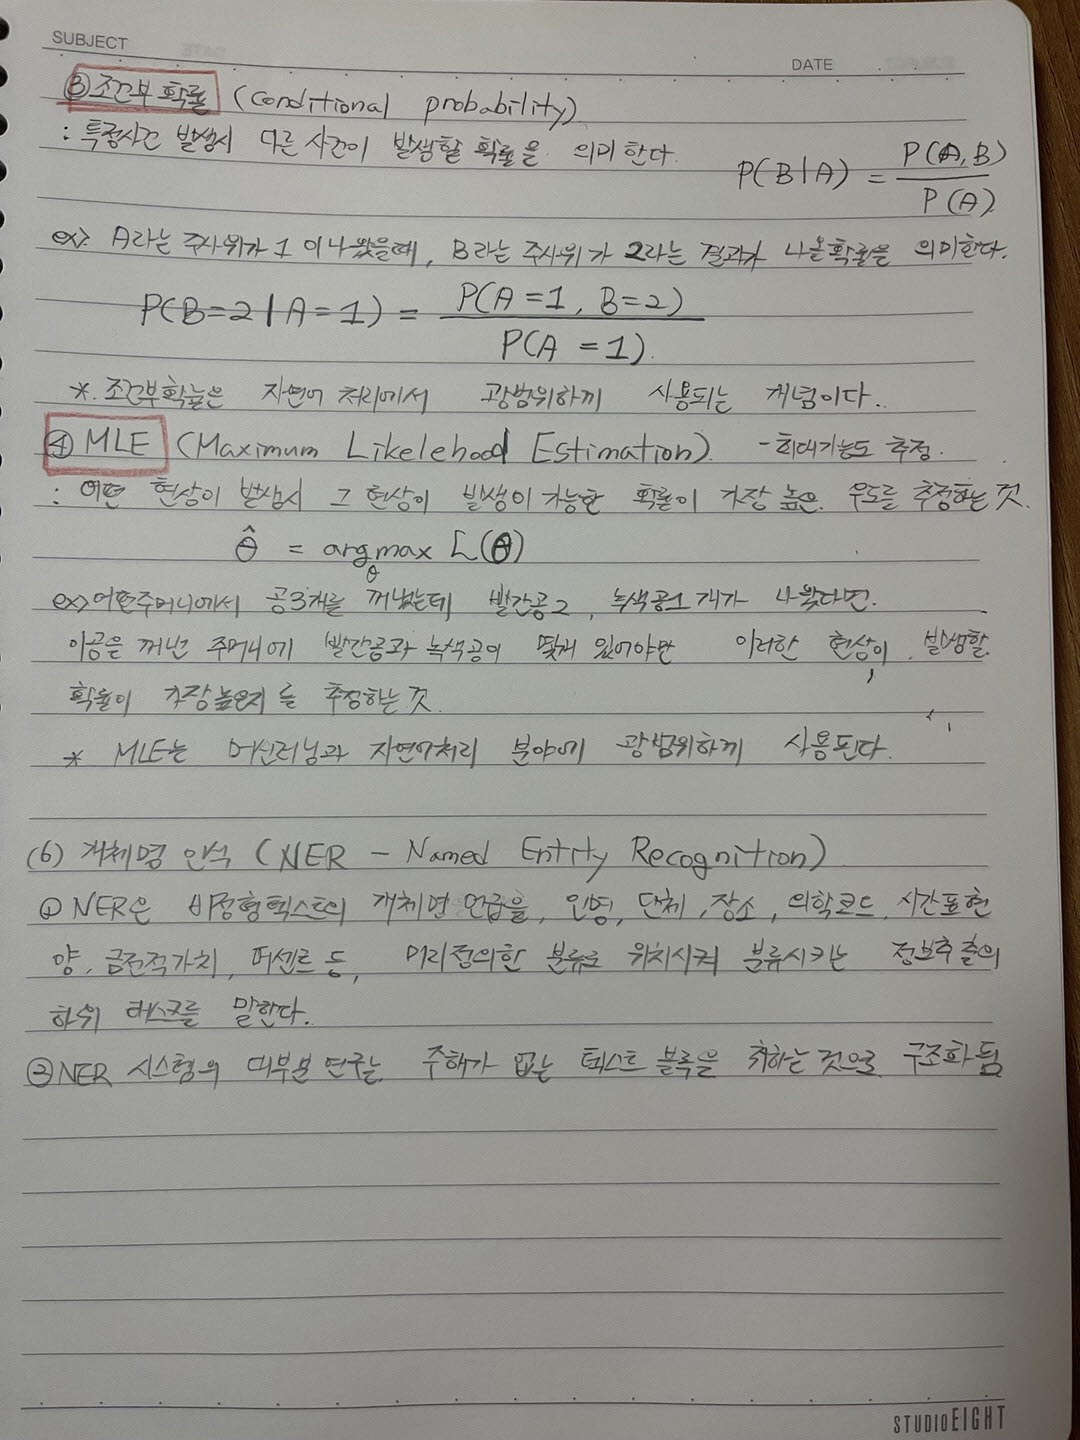 SUBJECT
DATE
③ 조건부 확률 (Conditional probability)
: 특정사건 발생시 다른 사건이 발생할 확률을 의미한다.
P(B|A) = P(A,B) / P(A)
ex> A라는 주사위가 1이 나왔을때, B라는 주사위가 2라는 결과가 나올확률을 의미한다.
P(B=2|A=1) = P(A=1, B=2) / P(A=1).
*. 조건부확률은 자연어 처리에서 광범위하게 사용되는 개념이다..
④ MLE (Maximum Likelehood Estimation) - 최대가능도 추정.
: 어떤 현상이 발생시 그 현상이 발생이 가능한 확률이 가장 높은 우도를 추정하는 것.
θ̂ = argmax_θ L(θ)
ex> 어떤주머니에서 공3개를 꺼냈는데 빨간공2, 녹색공1개가 나왔다면.
이공을 꺼낸 주머니에 빨간공과 녹색공이 몇개 있어야만 이러한 현상이 발생할
확률이 가장높은지를 추정하는 것.
* MLE는 머신러닝과 자연어처리 분야에 광범위하게 사용된다.
(6) 개체명 인식 (NER - Named Entity Recognition)
① NER은 비정형텍스트의 개체명 언급을, 인명, 단체, 장소, 의학코드, 시간표현
양, 금전적가치, 퍼센트 등, 미리정의한 분류로 위치시켜 분류시키는 정보추출의
하위 태스크를 말한다.
② NER 시스템의 대부분 연구는 주해가 없는 텍스트 블록을 취하는 것으로 구조화됨
STUDIO EIGHT